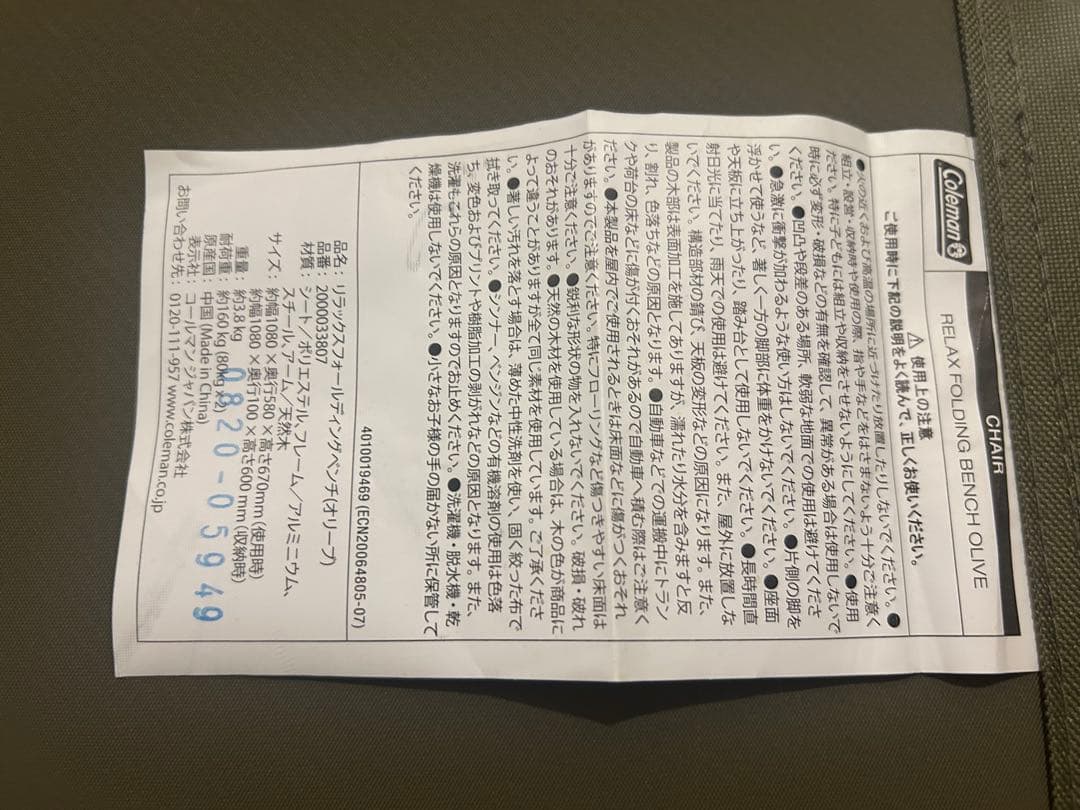 Coleman
CHAIR
RELAX FOLDING BENCH OLIVE
⚠ 使用上の注意
ご使用時に下記の説明をよく読んで、正しくお使いください。
●火の近くおよび高温の場所に近づけたり放置したりしないでください。●
組立・設営・収納時や使用の際、指や手などをはさまないよう十分ご注意く
ださい。特に子どもには組立や収納をさせないようにしてください。●使用
時に必ず変形・破損などの有無を確認して、異常がある場合は使用しないで
ください。●凹凸や段差のある場所、軟弱な地面での使用は避けてくださ
い。●急激に衝撃が加わるような使い方はしないでください。●片側の脚を
浮かせて使うなど、著しく一方の脚部に体重をかけないでください。●座面
や天板に立ち上がったり、踏み台として使用しないでください。●長時間直
射日光に当てたり、雨天での使用は避けてください。また、屋外に放置しな
いでください。構造部材の錆び、天板の変形などの原因になります。また、
製品の木部は表面加工を施してありますが、濡れたり水分を含みますと反
り、割れ、色落ちなどの原因となります。●自動車などでの運搬中にトラン
クや荷台の床などに傷が付くおそれがあるので自動車へ積む際はご注意く
ださい。●本製品を屋内でご使用されるときは床面などに傷がつくおそれ
がありますのでご注意ください。特にフローリングなど傷つきやすい床面は
十分ご注意ください。●鋭利な形状の物を入れないでください。破損・破れ
のおそれがあります。●天然の木材を使用している場合は、木の色が商品に
よって違うことがありますが全て同じ素材を使用しています。ご了承くださ
い。●著しい汚れを落とす場合は、薄めた中性洗剤を使い、固く絞った布で
拭き取ってください。●シンナー、ベンジンなどの有機溶剤の使用は色落
ち、変色およびプリントや樹脂加工の剥がれなどの原因となります。また、
洗濯もこれらの原因となりますのでお止めください。●洗濯機・脱水機・乾
燥機は使用しないでください。●小さなお子様の手の届かない所に保管して
ください。
4010019469 (ECN20064805-07)
品名：リラックスフォールディングベンチ(オリーブ)
品番：2000033807
材質：シート／ポリエステル、フレーム／アルミニウム、
スチール、アーム／天然木
サイズ：約幅1080×奥行580×高さ670mm(使用時)
約幅1080×奥行100×高さ600mm(収納時)
重量：約3.8kg
耐荷重：約160kg(80kg×2)
原産国：中国(Made in China)
表示社：コールマン ジャパン株式会社
お問い合わせ先：0120-111-957 www.coleman.co.jp
0820-05949